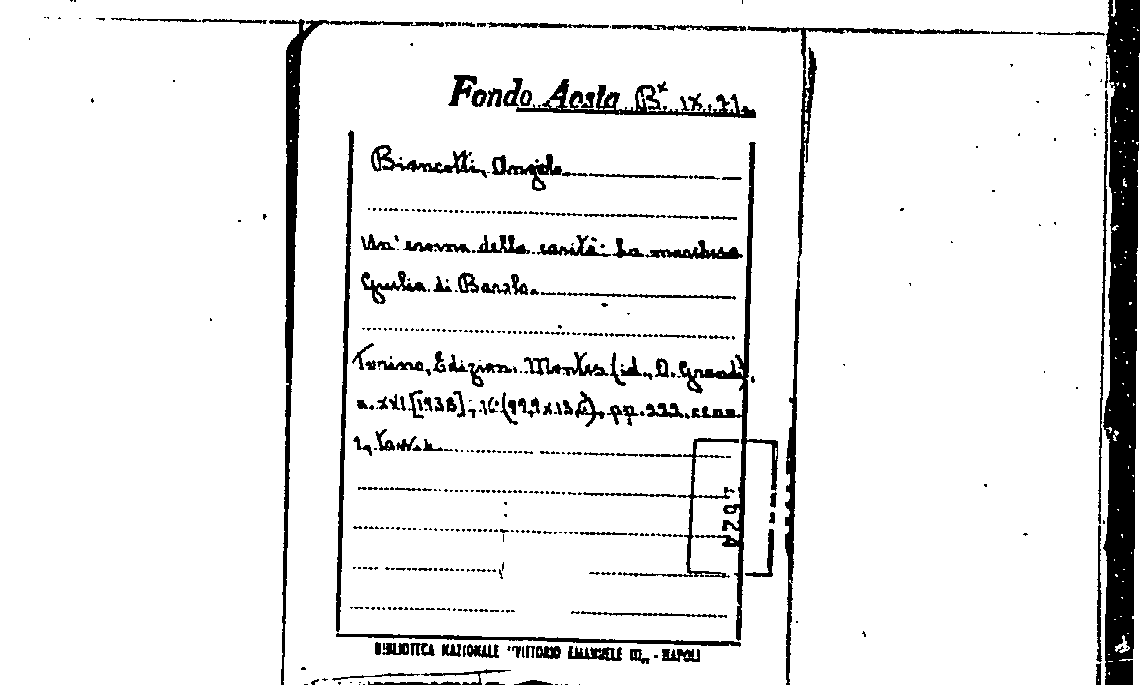 Fondo Aosta B^x. IX. 71.
Biancotti, Angelo
Un' eroina della carità: La marchesa
Giulia di Barolo.
Torino, Edizion. Montes (id., D. Grandi),
a. XVI [1938]; 16° pp. 222, con
2, tavv.
4624
BIBLIOTECA NAZIONALE "VITTORIO EMANUELE III„ - NAPOLI